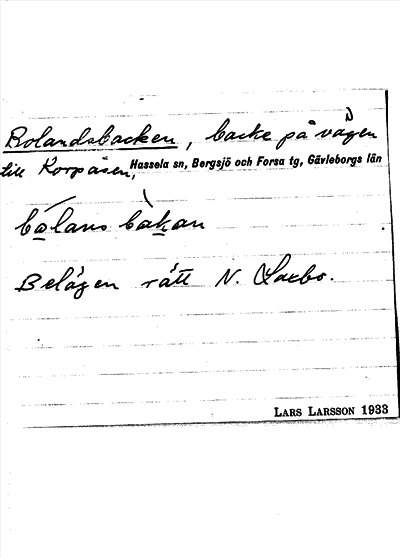 Bolandsbacken, backe på vägen
till Korpåsen, Hassela sn, Bergsjö och Forsa tg, Gävleborgs län
bo̲lans bak̲an
Belägen rätt N. Laxbo.
LARS LARSSON 1933